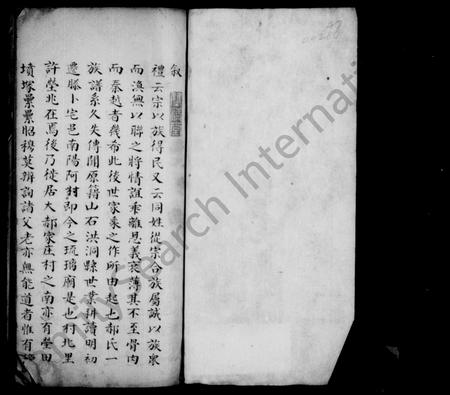 叙
禮云宗以族得民又云同姓從宗合族屬誠以族衆
而渙無以聯之將情誼乖離恩義衰薄其不至骨肉
而秦越者幾希此後世家乘之作所由起也郝氏一
族譜系久失傳聞原籍山石洪洞縣世業耕讀明初
遷滕卜宅邑南陽阿村即今之琉璃廟是也村北里
許塋兆在焉後乃徙居大郝家庄村之南亦有塋田
墳塚纍纍昭穆莫辨詢諸父老亦無能道者惟有
FamilySearch International